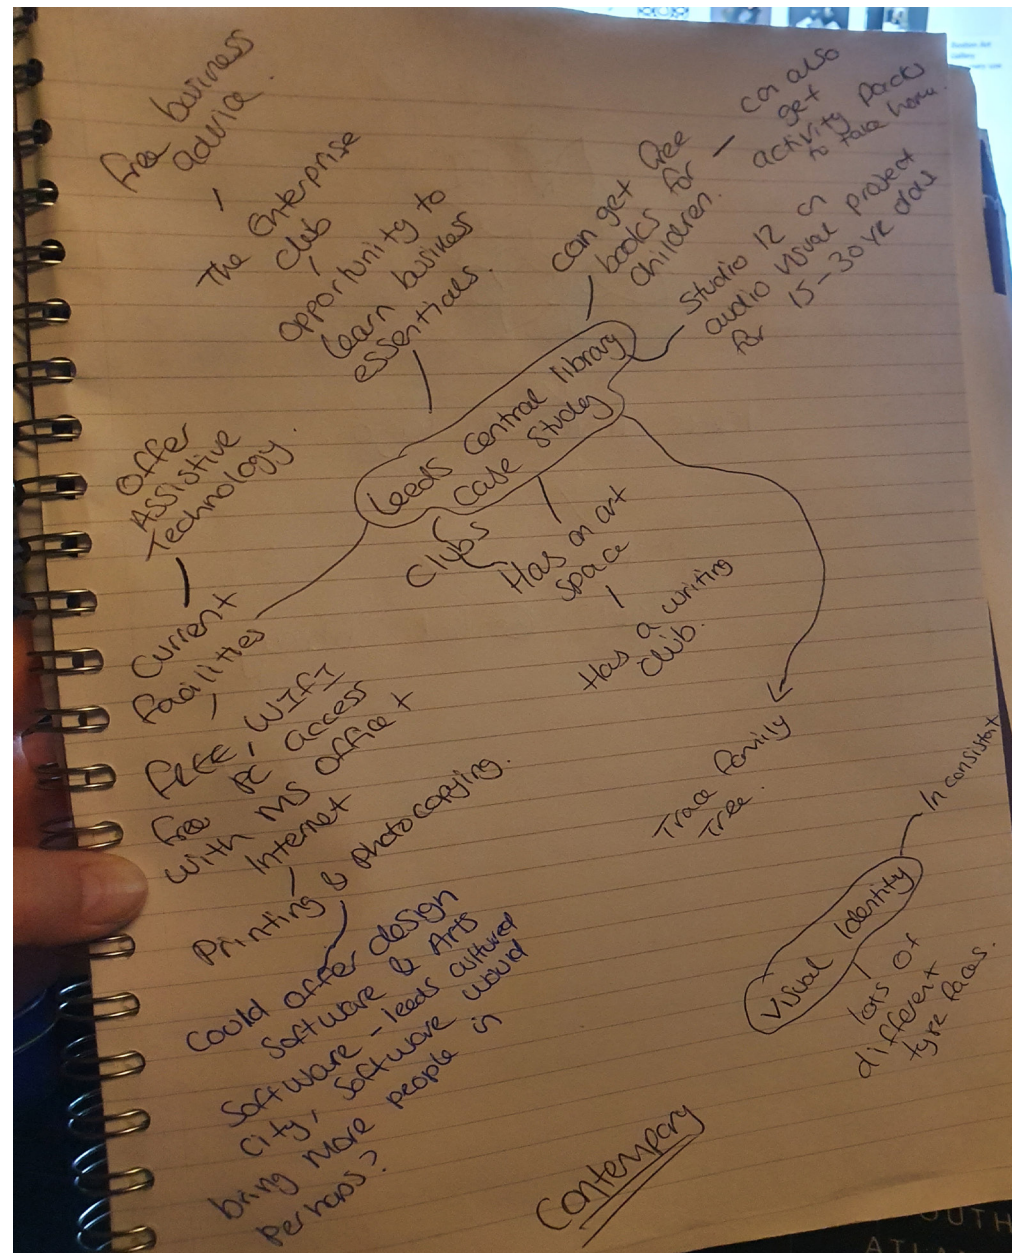 free business
advice.
The Enterprise
club
opportunity to
learn business
essentials.
can get free
books for
children.
can also
get
activity packs
to take home.
Studio 12 an
audio visual project
for 15-30 yr olds
Leeds central library
case study
Offer
Assistive
Technology.
Current
facilities
Clubs
Has an art
space
Has a writing
club.
Free-WIFI
Free PC access
with MS office +
Internet
Printing & Photocopying.
Could offer design
software & Arts
software - leeds cultured
city, software would
bring more people in
perhaps?
Trace family
Tree.
Inconsistent
Visual Identity
lots of
different
type faces.
Contempary
OUTH